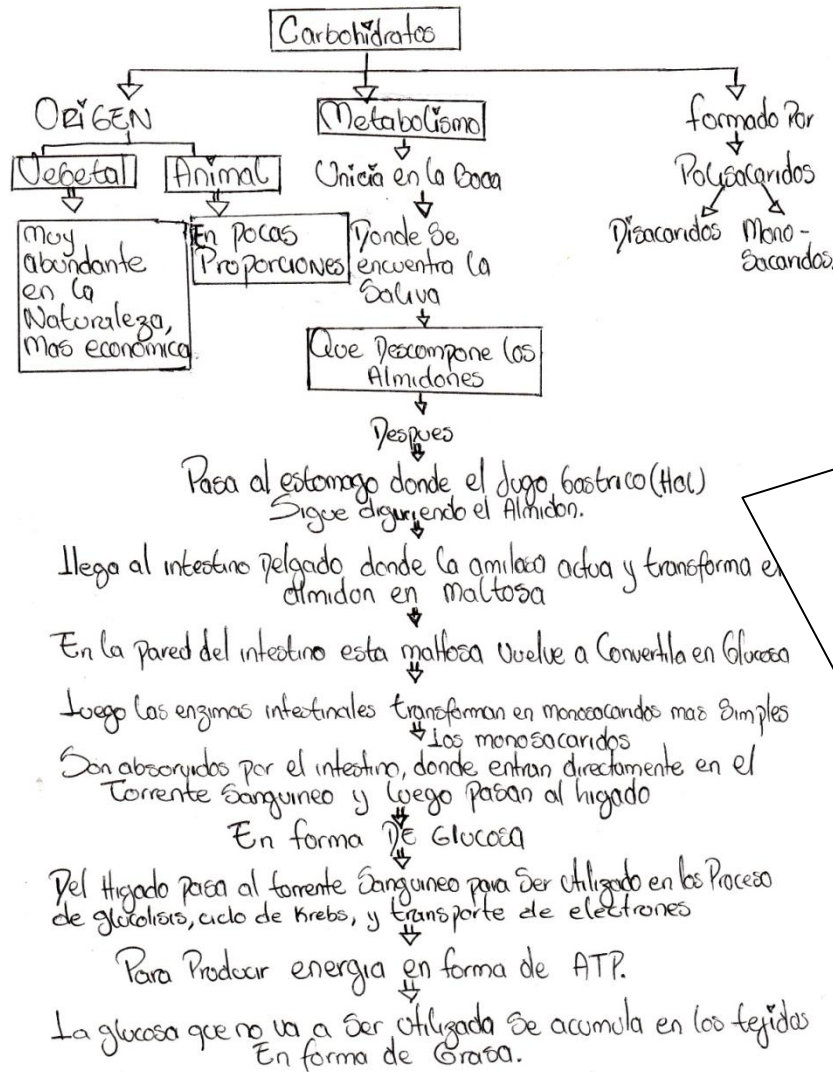 Carbohidratos
ORIGEN
Metabolismo
formado Por
Vegetal
Animal
Unicia en la Boca
Polisacaridos
Disacaridos
Mono-
Sacaridos
muy
abundante
en la
Naturaleza,
Mas económica
En Pocas
Proporciones
Donde Se
encuentra la
Saliva
Que Descompone los
Almidones
Despues
Pasa al estomago donde el Jugo Gastrico (Hcl)
Sigue diguriendo el Almidon.
Llega al intestino Delgado donde la amilasa actua y transforma el
almidon en maltosa
En la pared del intestino esta maltosa vuelve a Convertila en Glucosa
Luego las enzimas intestinales transforman en monosacaridos mas Simples
Los monosacaridos
Son absorvidos por el intestino, donde entran directamente en el
Torrente Sanguineo y luego pasan al higado
En forma DE Glucosa
Del Higado pasa al torrente Sanguineo para Ser utilizado en los Proceso
de glucolisis, ciclo de Krebs, y transporte de electrones
Para Producir energia en forma de ATP.
La glucosa que no va a Ser utilizada Se acumula en los tejidos
En forma de Grasa.